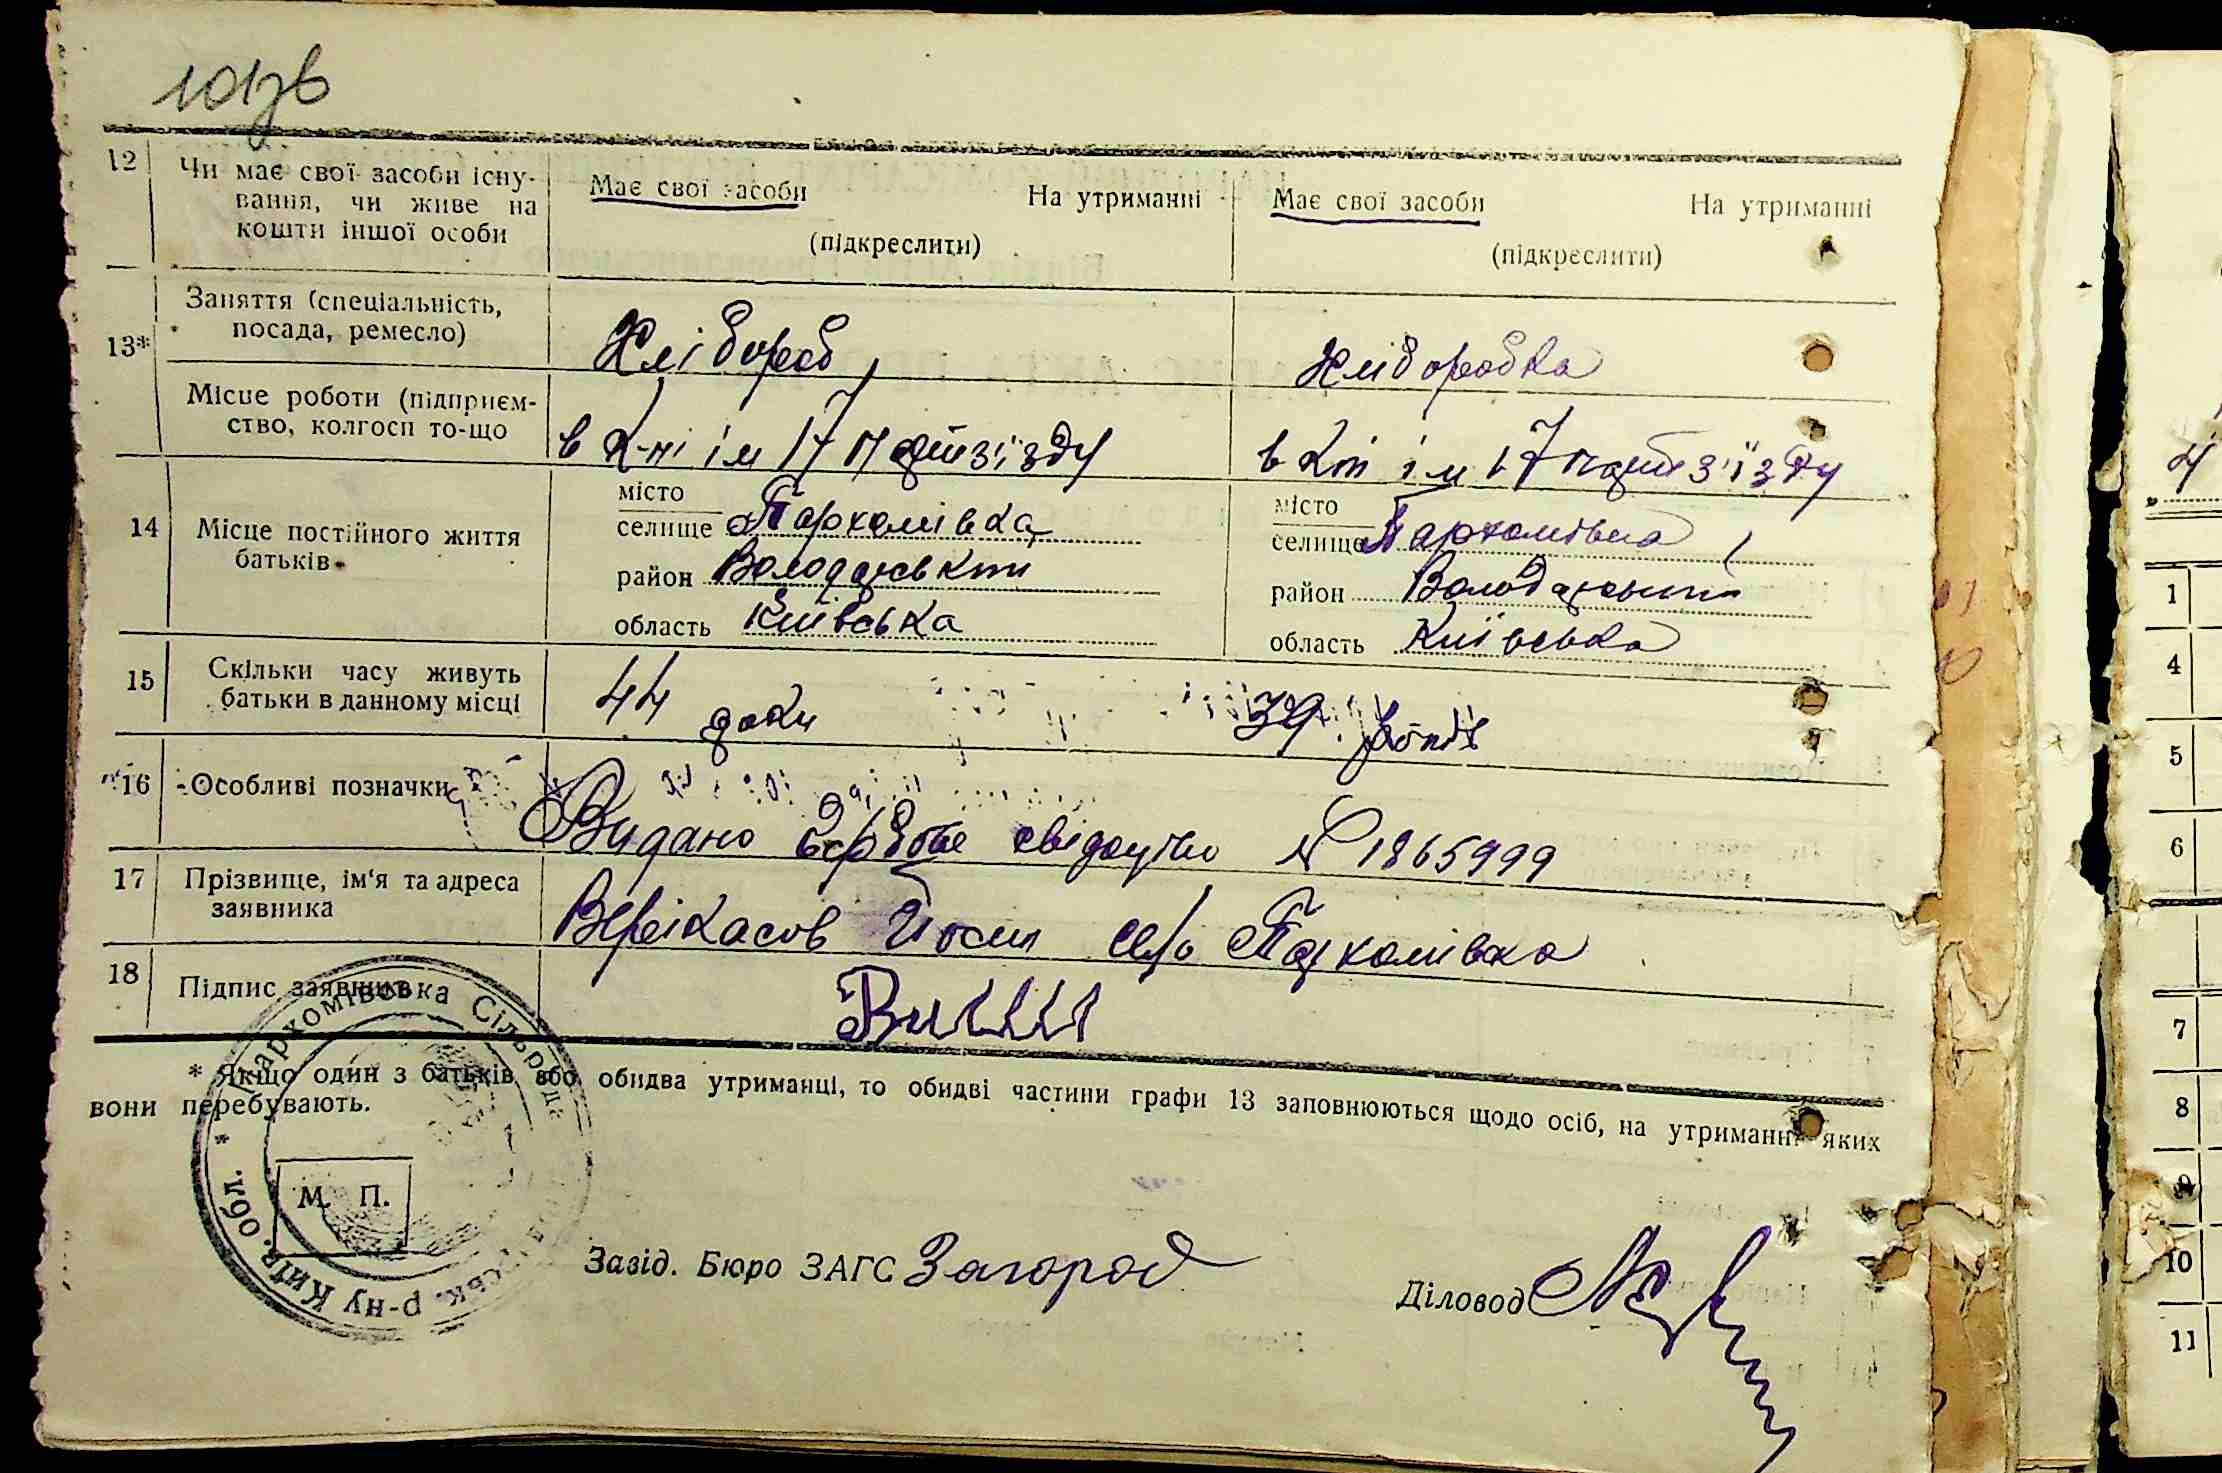 12 Чи має свої засоби існу-
вання, чи живе на
кошти іншої особи
Має свої засоби На утриманні Має свої засоби На утриманні
(підкреслити) (підкреслити)
13* Заняття (спеціальність,
посада, ремесло)
Хлібороб Хліборобка
Місце роботи (підприєм-
ство, колгосп то-що
в к-пі ім 17 партзїзду в кпі ім 17 партзїзду
14 Місце постійного життя
батьків
місто
селище Пархомівка
район Володарський
область Київська
місто
селище Пархомівка
район Володарський
область Київська
15 Скільки часу живуть
батьки в данному місці
44 роки 39 років
16 Особливі позначки
Видано гербове свідоцтво № 1865999
17 Прізвище, ім'я та адреса
заявника
Верікасов Йосип село Пархомівка
18 Підпис заявника
* Якщо один з батьків або обидва утриманці, то обидві частини графи 13 заповнюються щодо осіб, на утриманні яких
вони перебувають.
Пархомівська Сільрада
р-ну Київ. обл. *
М. П.
Завід. Бюро ЗАГС Загород
Діловод
1
4
5
6
7
8
9
10
11